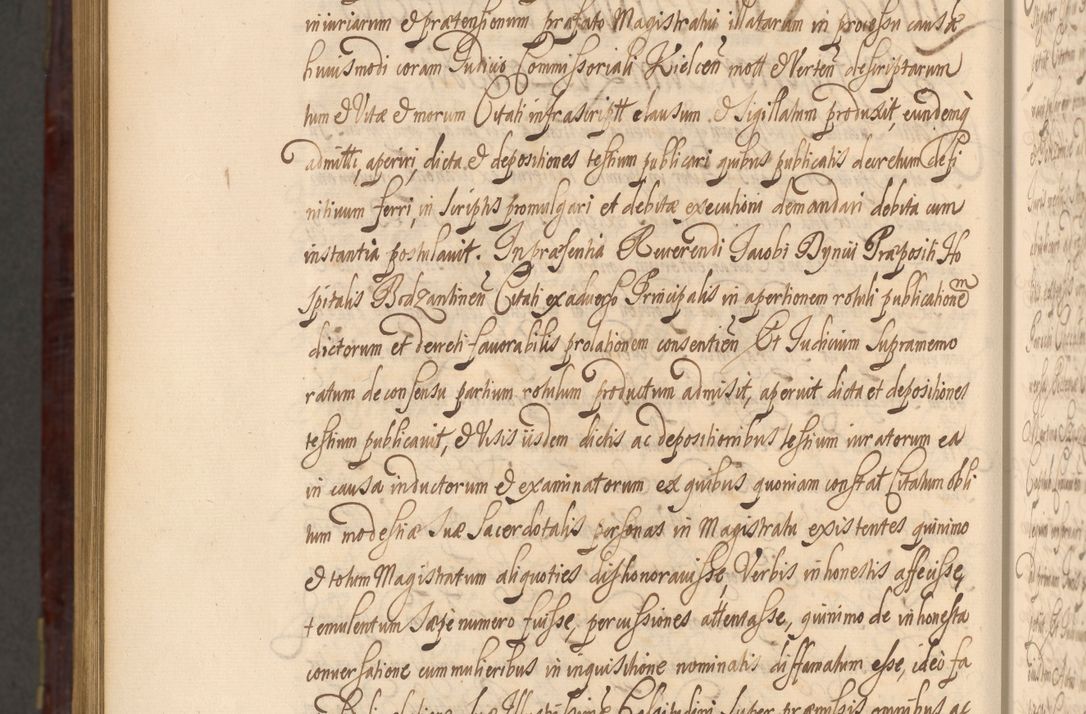 iniuriarum & prætensionum præfato Magistratui illatarum in processu causæ
huiusmodi coram Iudicio Commissoriali Kielceñ mott & Verteñ descriptarum
tum & Vitæ & morum Citati infrascriptt clausum & sigillatum produxit, eundemq̀
admitti, aperiri, dicta & depositiones testium publicari quibus publicatis decretum defi
nitivum ferri, in scriptis promulgari et debitæ executioni demandari debita cum
instantia postulavit. In præsentia Reverendi Iacobi Byncii Præpositi Ho
spitalis Bodzantineñ Citati ex adverso Principalis in apertionem rotuli publicationem
dictorum et decreti favorabilis prolationem consentieñ Et Iudicium supramemo
ratum de consensu partium rotulum productum admisit, aperuit dicta et depositiones
testium publicavit, & Visis iisdem dictis ac depositionibus testium iuratorum ea
in causa inductorum & examinatorum ex quibus quoniam constat Citatum obli
tum modestiæ suæ sacerdotalis personas in Magistratu existentes quinimo
& totum Magistratum aliquoties dishonoravisse, Verbis inhonestis affecisse,
temulentum sæpenumero fuisse, percussiones attentasse, quinimo de inhonesta
conversatione cum mulieribus in inquisitione nominatis diffamatum esse, ideo fa
super præmissis omnibus ac